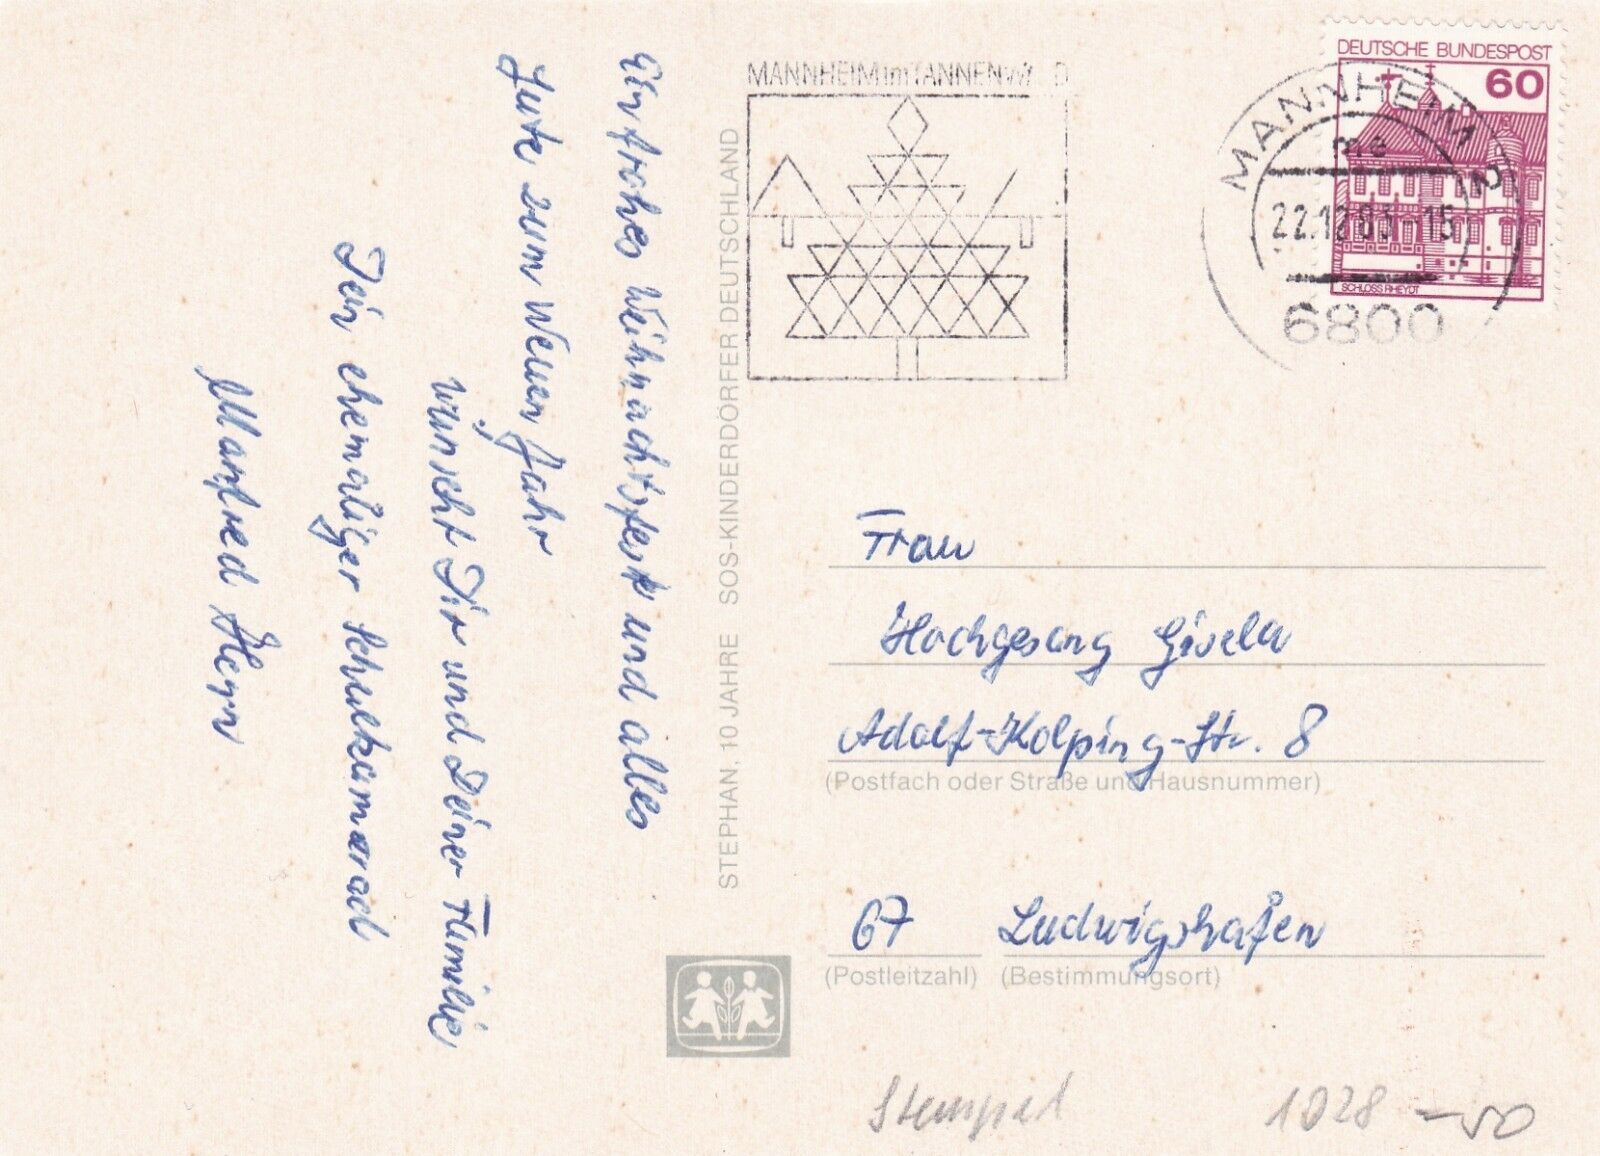 Ein frohes Weihnachtsfest und alles
Gute zum Neuen Jahr
wünscht Dir und Deiner Familie
Dein ehemaliger Schulkamerad
Manfred
STEPHAN, 10 JAHRE SOS-KINDERDÖRFER DEUTSCHLAND
MANNHEIM im TANNENw D
DEUTSCHE BUNDESPOST
60
SCHLOSS RHEYDT
MANNHEIM 2
me
22.12.83-15
6800
Frau
Hochgesang Gisela
Adolf-Kolping-Str. 8
(Postfach oder Straße und Hausnummer)
67 Ludwigshafen
(Postleitzahl) (Bestimmungsort)
Stempel 1028 -50